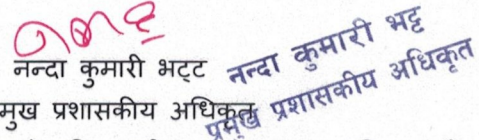 नन्दा कुमारी भट्ट
मुख प्रशासकीय अधिकृत
नन्दा कुमारी भट्ट
प्रमुख प्रशासकीय अधिकृत